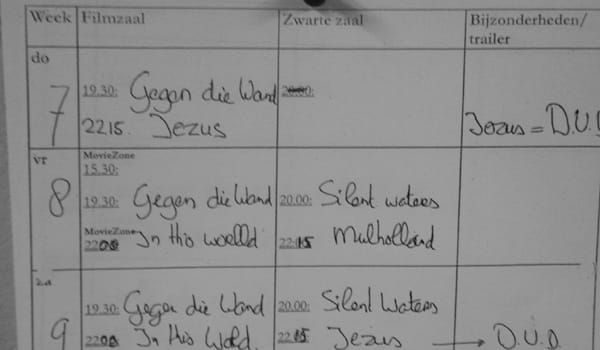 Week Filmzaal Zwarte zaal Bijzonderheden/
trailer
do
7 19.30: Gegen die Wand 20.00:
2215. Jezus Jezus = D.V.D
vr
8 MovieZone
15.30:
19.30: Gegen die Wand 20.00: Silent waters
MovieZone
2200 In this woelld 22:15 Mulholland
za
9 19.30: Gegen die Wand 20.00: Silent Waters
2200 In this Wold. 22.15 Jezus → D.V.D.